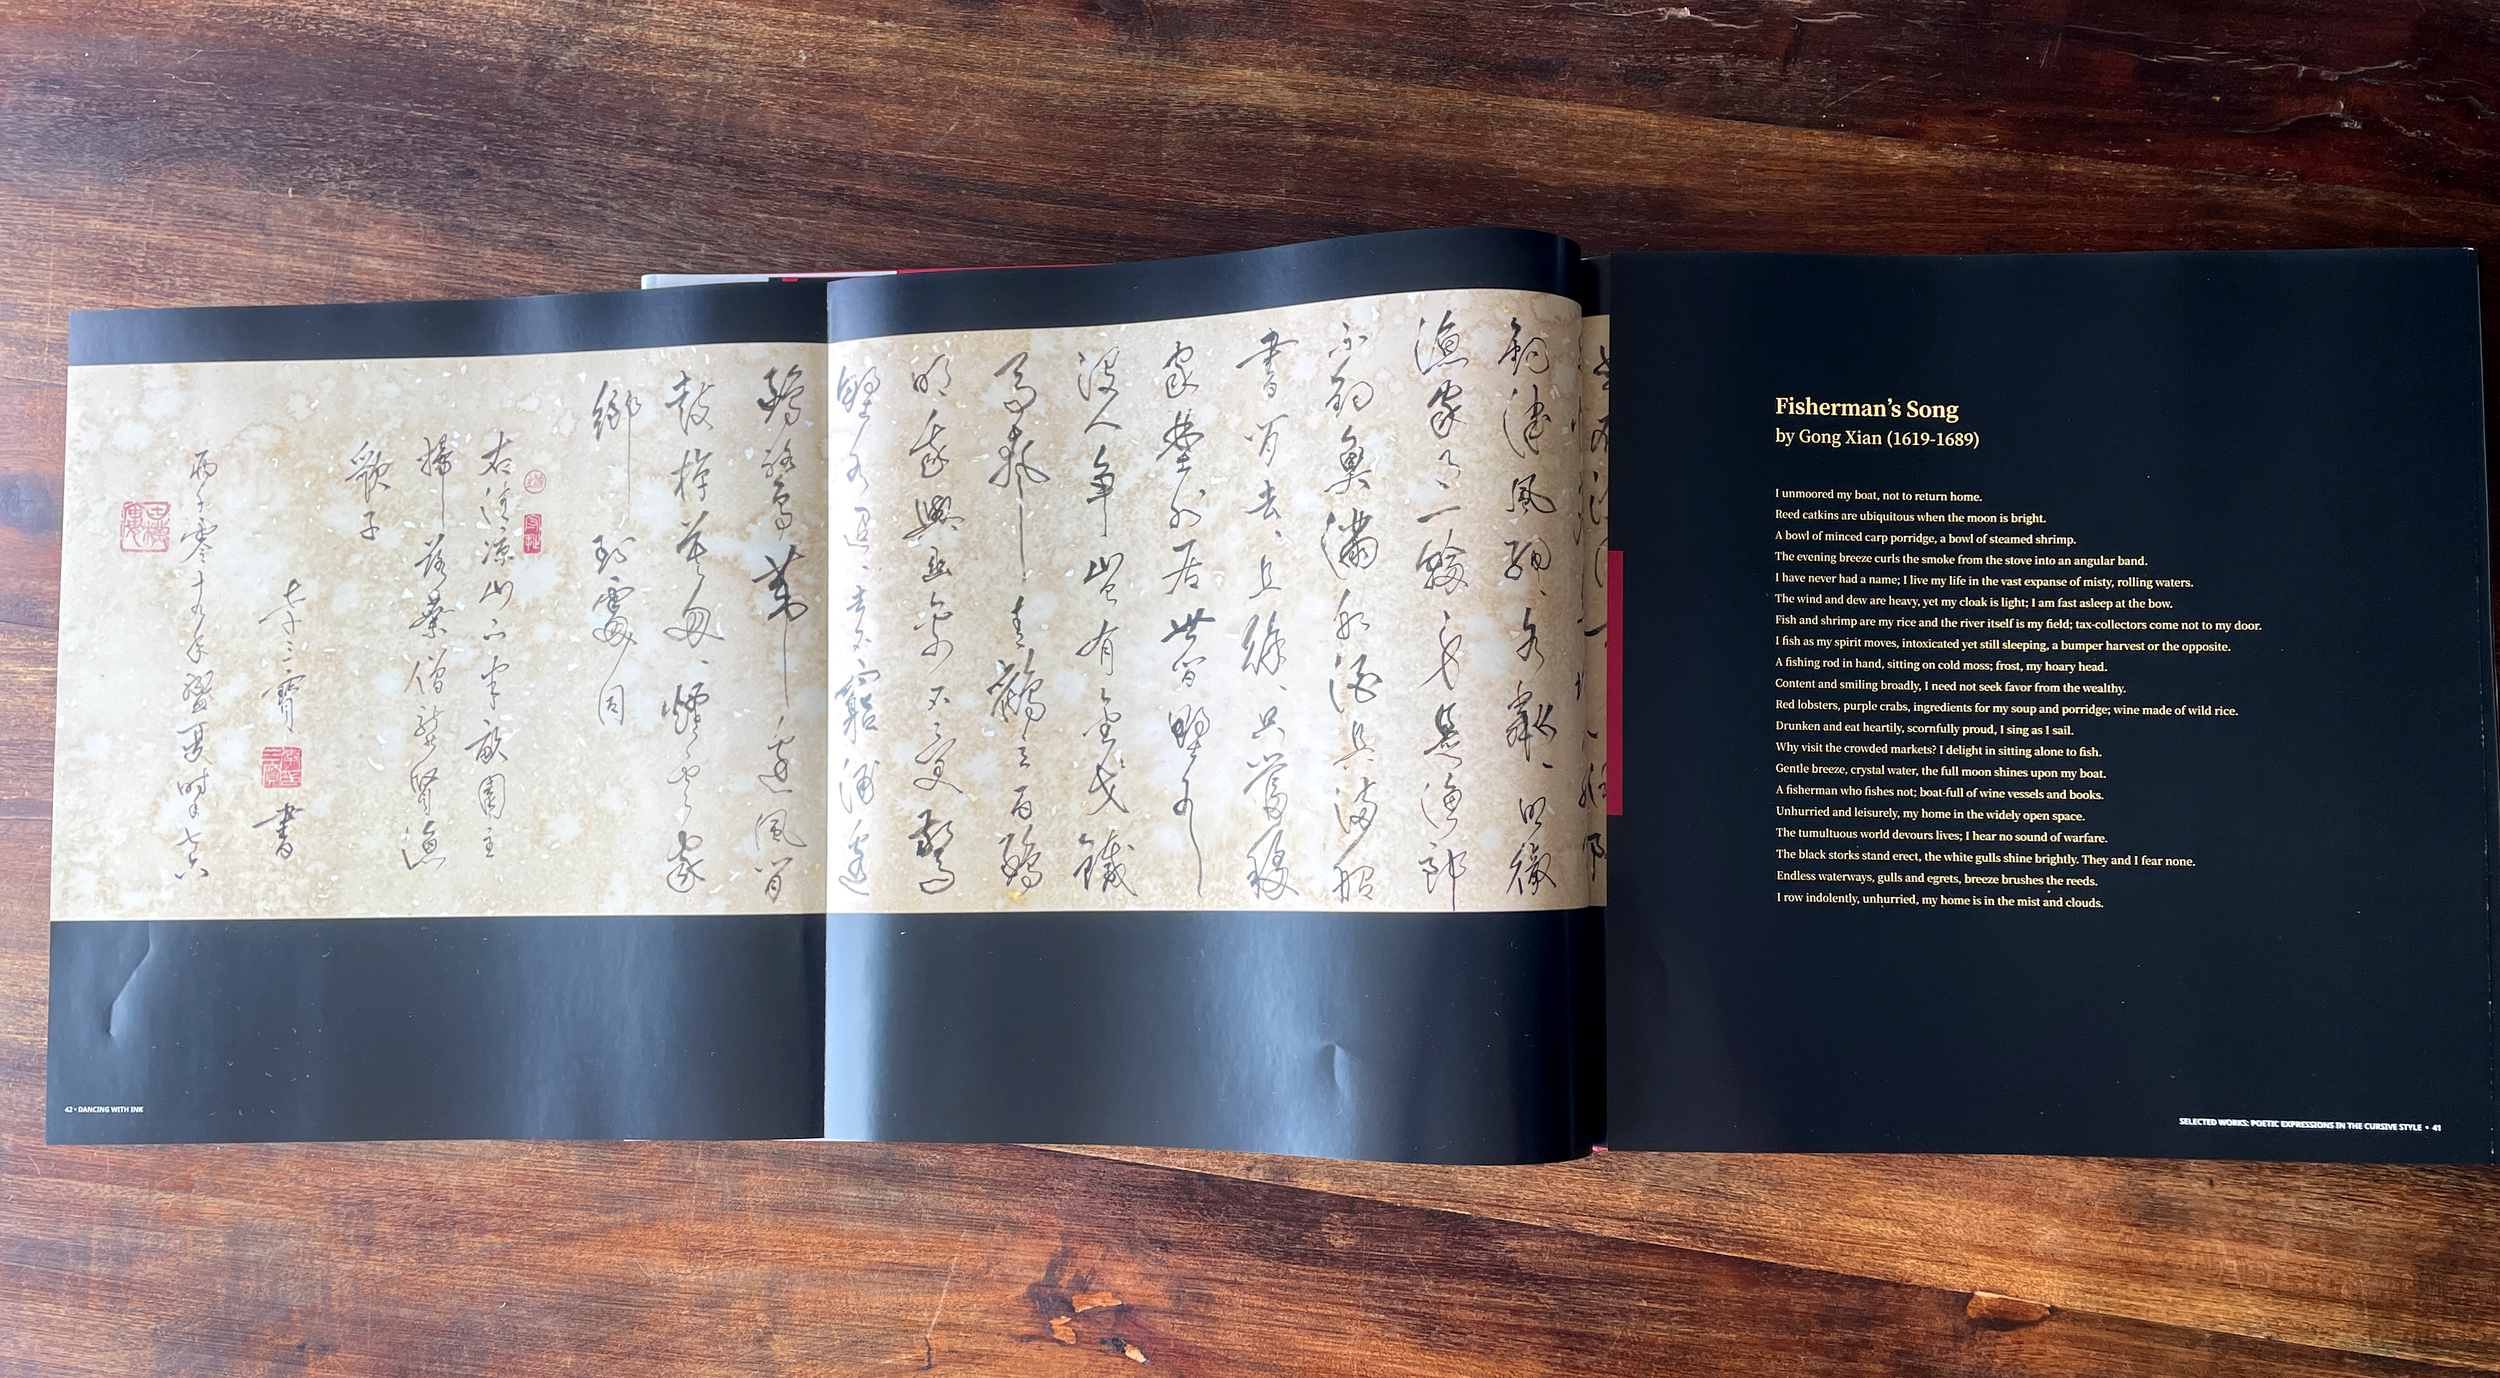 釣津風細、水粼、明徹
漁家月一輪身是漁郎
不釣魚滿船酒具滿船
書閒去、且徐、只當移
家塵外居世間野水
沒人爭豈有金戈鐵
馬聲玄鶴立白鷗
明我與無忌不受驚
野水逶、去不窮浦邊
鷗鷺葦邊風閒
鼓棹莫匆、煙雲家
鄉到處同
右清涼山下半畝園主
掃落葉僧龔賢漁
歌子
李三寶書
两千零十九年盛夏時年七六
42 • DANCING WITH INK
Fisherman's Song
by Gong Xian (1619-1689)
I unmoored my boat, not to return home.
Reed catkins are ubiquitous when the moon is bright.
A bowl of minced carp porridge, a bowl of steamed shrimp.
The evening breeze curls the smoke from the stove into an angular band.
I have never had a name; I live my life in the vast expanse of misty, rolling waters.
The wind and dew are heavy, yet my cloak is light; I am fast asleep at the bow.
Fish and shrimp are my rice and the river itself is my field; tax-collectors come not to my door.
I fish as my spirit moves, intoxicated yet still sleeping, a bumper harvest or the opposite.
A fishing rod in hand, sitting on cold moss; frost, my hoary head.
Content and smiling broadly, I need not seek favor from the wealthy.
Red lobsters, purple crabs, ingredients for my soup and porridge; wine made of wild rice.
Drunken and eat heartily, scornfully proud, I sing as I sail.
Why visit the crowded markets? I delight in sitting alone to fish.
Gentle breeze, crystal water, the full moon shines upon my boat.
A fisherman who fishes not; boat-full of wine vessels and books.
Unhurried and leisurely, my home in the widely open space.
The tumultuous world devours lives; I hear no sound of warfare.
The black storks stand erect, the white gulls shine brightly. They and I fear none.
Endless waterways, gulls and egrets, breeze brushes the reeds.
I row indolently, unhurried, my home is in the mist and clouds.
SELECTED WORKS: POETIC EXPRESSIONS IN THE CURSIVE STYLE • 41